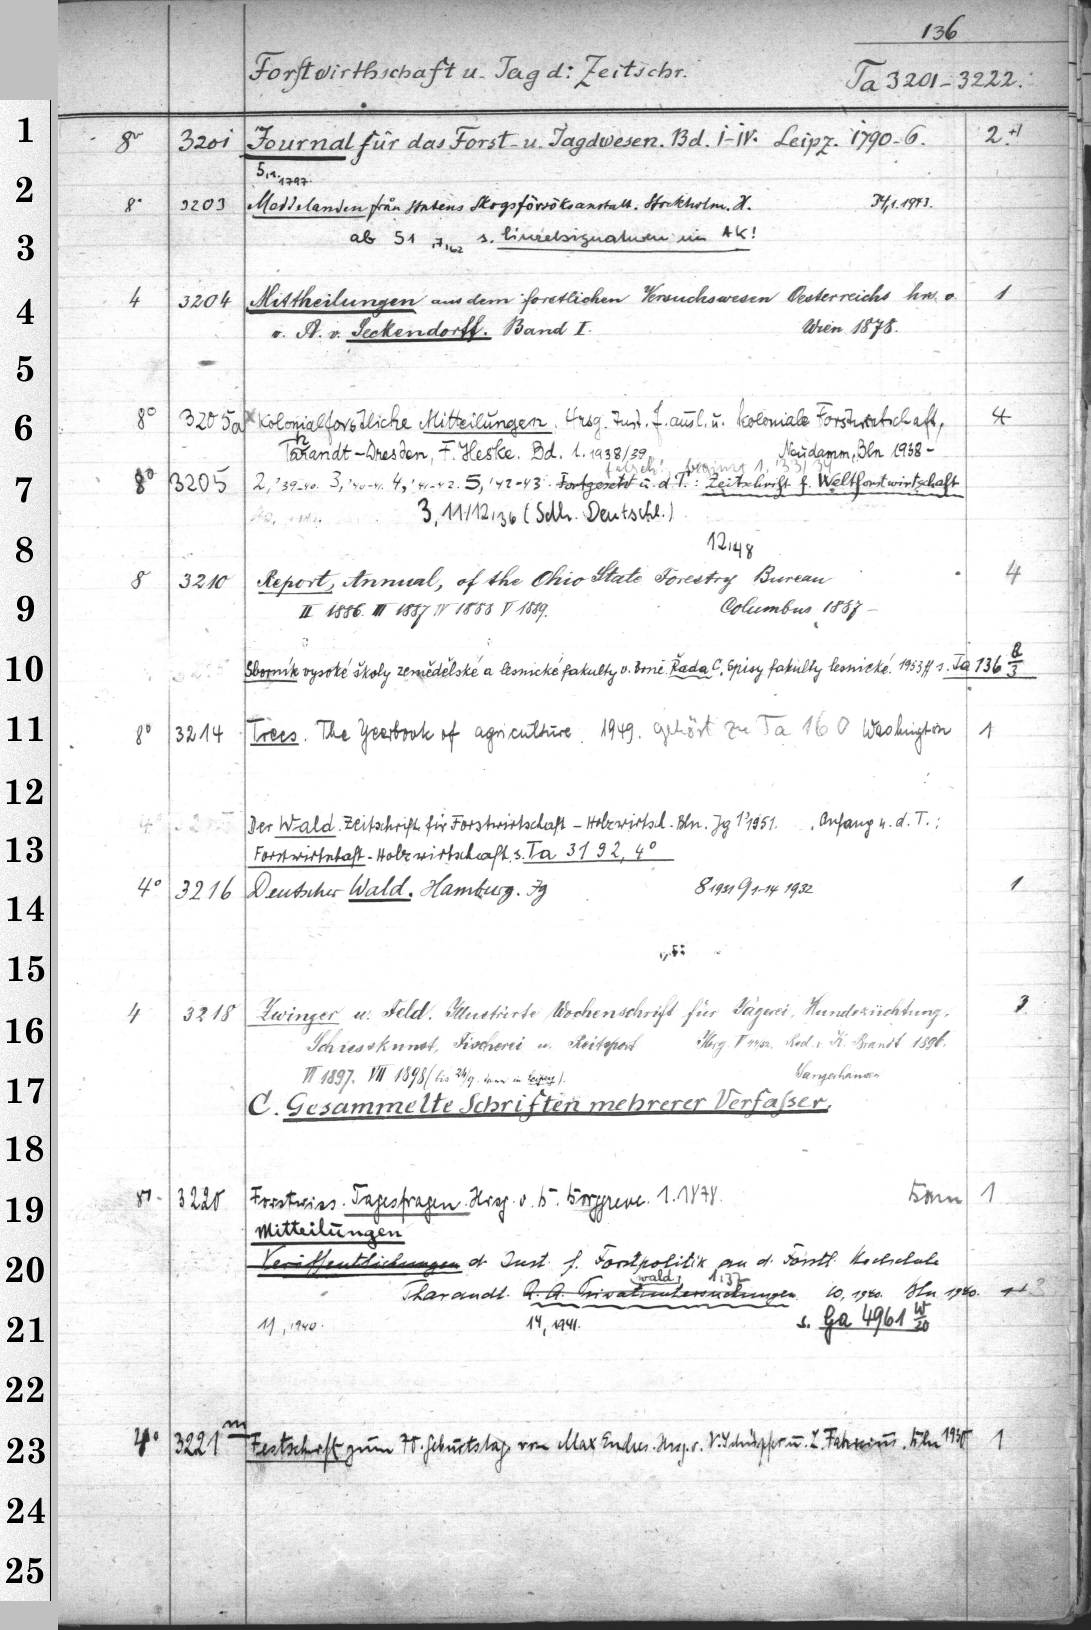 136
Forstwirthschaft u. Jagd: Zeitschr. Ta 3201-3222.
1 8° 3201 Journal für das Forst- u. Jagdwesen. Bd. I-IV. Leipz. 1790-6. 2
2 5,1.1797.
8° 3203 Meddelanden från Statens Skogsförsöksanstalt. Stockholm. H. 34,1.1943.
3 ab 51 s. Einzelsignaturen im AK!
4 4 3204 Mittheilungen aus dem forstlichen Versuchswesen Oesterreichs 1
v. A. v. Seckendorff. Band I. Wien 1878.
5
6 8° 3205a Kolonialforstliche Mitteilungen. Hrsg. Inst. f. ausl. u. koloniale Forstwirtschaft, 4
Tharandt-Dresden, F. Heske. Bd. 1. 1938/39. Neudamm, Bln 1938-
7 8° 3205 2,'39-40. 3,'40-41. 4,'41-42. 5,'42-43. Fortgesetzt u. d. T.: Zeitschrift f. Weltforstwirtschaft
3, 11/12,36 (Sdh. Deutschl.)
8 12,48
8 3210 Report, Annual, of the Ohio State Forestry Bureau 4
9 II 1886. III 1887 IV 1888 V 1889. Columbus 1887-
10 Sborník vysoké školy zemědělské a lesnické fakulty v. Brně. Řada C, Spisy fakulty lesnické. 1953ff s. Ta 136 8/3
11 8° 3214 Trees. The Yearbook of agriculture. 1949. gehört zu Ta 160 Washington 1
12
Der Wald. Zeitschrift für Forstwirtschaft - Holzwirtsch. Bln. Jg 1 1951. Anfang u. d. T.:
13 Forstwirtschaft - Holzwirtschaft s. Ta 3192, 4°
14 4° 3216 Deutscher Wald. Hamburg. Jg 8 1931 9 1-14 1932 1
15
16 4 3218 Zwinger u. Feld. Illustrirte Wochenschrift für Jägerei, Hundezüchtung, 3
Schiesskunst, Fischerei u. Reitsport Red. v. K. Brandt 1896.
17 VI 1897. VII 1898 (bis 24/9. dann in Leipzig). Sangerhausen
C. Gesammelte Schriften mehrerer Verfasser.
18
19 3220 Forstwiss. Tagesfragen. Hrsg. v. B. Borggreve. 1.1878. Bonn 1
Mitteilungen
20 Veröffentlichungen d. Inst. f. Forstpolitik an d. Forstl. Hochschule
Tharandt. R. A. Privatwalduntersuchungen 1,37 10, 1940. Bln 1940. 3
21 11, 1940. 14, 1941. s. Ga 4961 W/20
22
23 4° 3221m Festschrift zum 70. Geburtstag von Max Endres. Hrsg. v. V. Schüpfer u. L. Fabricius. Bln 1930 1
24
25